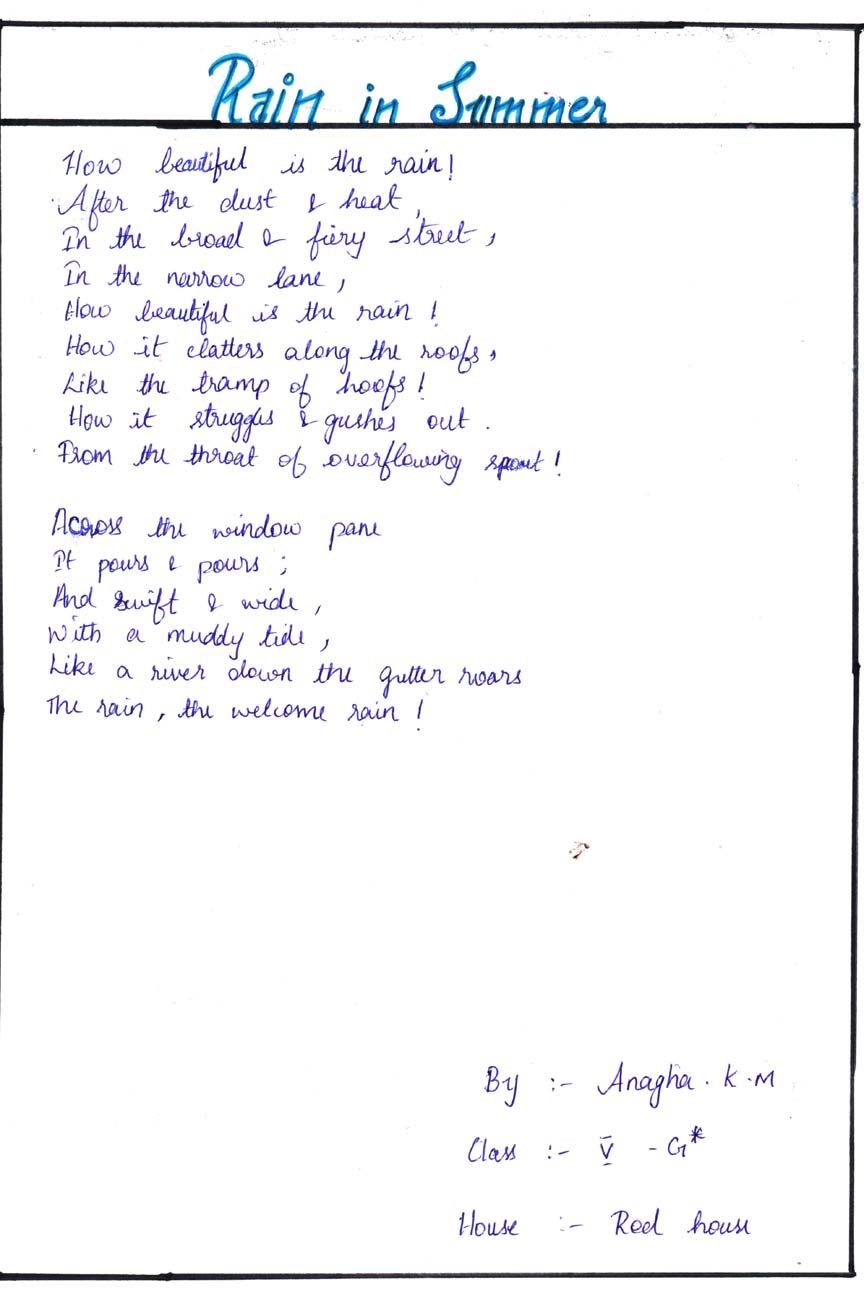 Rain in Summer
How beautiful is the rain!
After the dust & heat,
In the broad & fiery street,
In the narrow lane,
How beautiful is the rain!
How it clatters along the roofs,
Like the tramp of hoofs!
How it struggles & gushes out.
From the throat of overflowing spout!
Across the window pane
It pours & pours;
And swift & wide,
With a muddy tide,
Like a river down the gutter roars
The rain, the welcome rain!
By :- Anagha. K.M
Class :- V - G*
House :- Red house